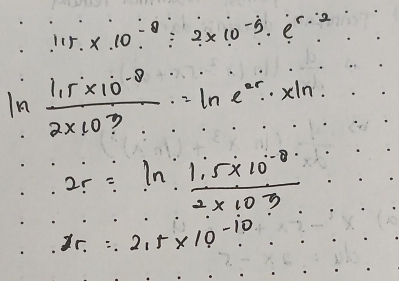 1,5 × 10⁻⁸ = 2×10⁻⁹ . e^r.2
ln 1,5×10⁻⁸ / 2×10⁹ = ln e^2r . xln
2r = ln 1,5×10⁻⁸ / 2×10⁹
2r = 2,5×10⁻¹⁰